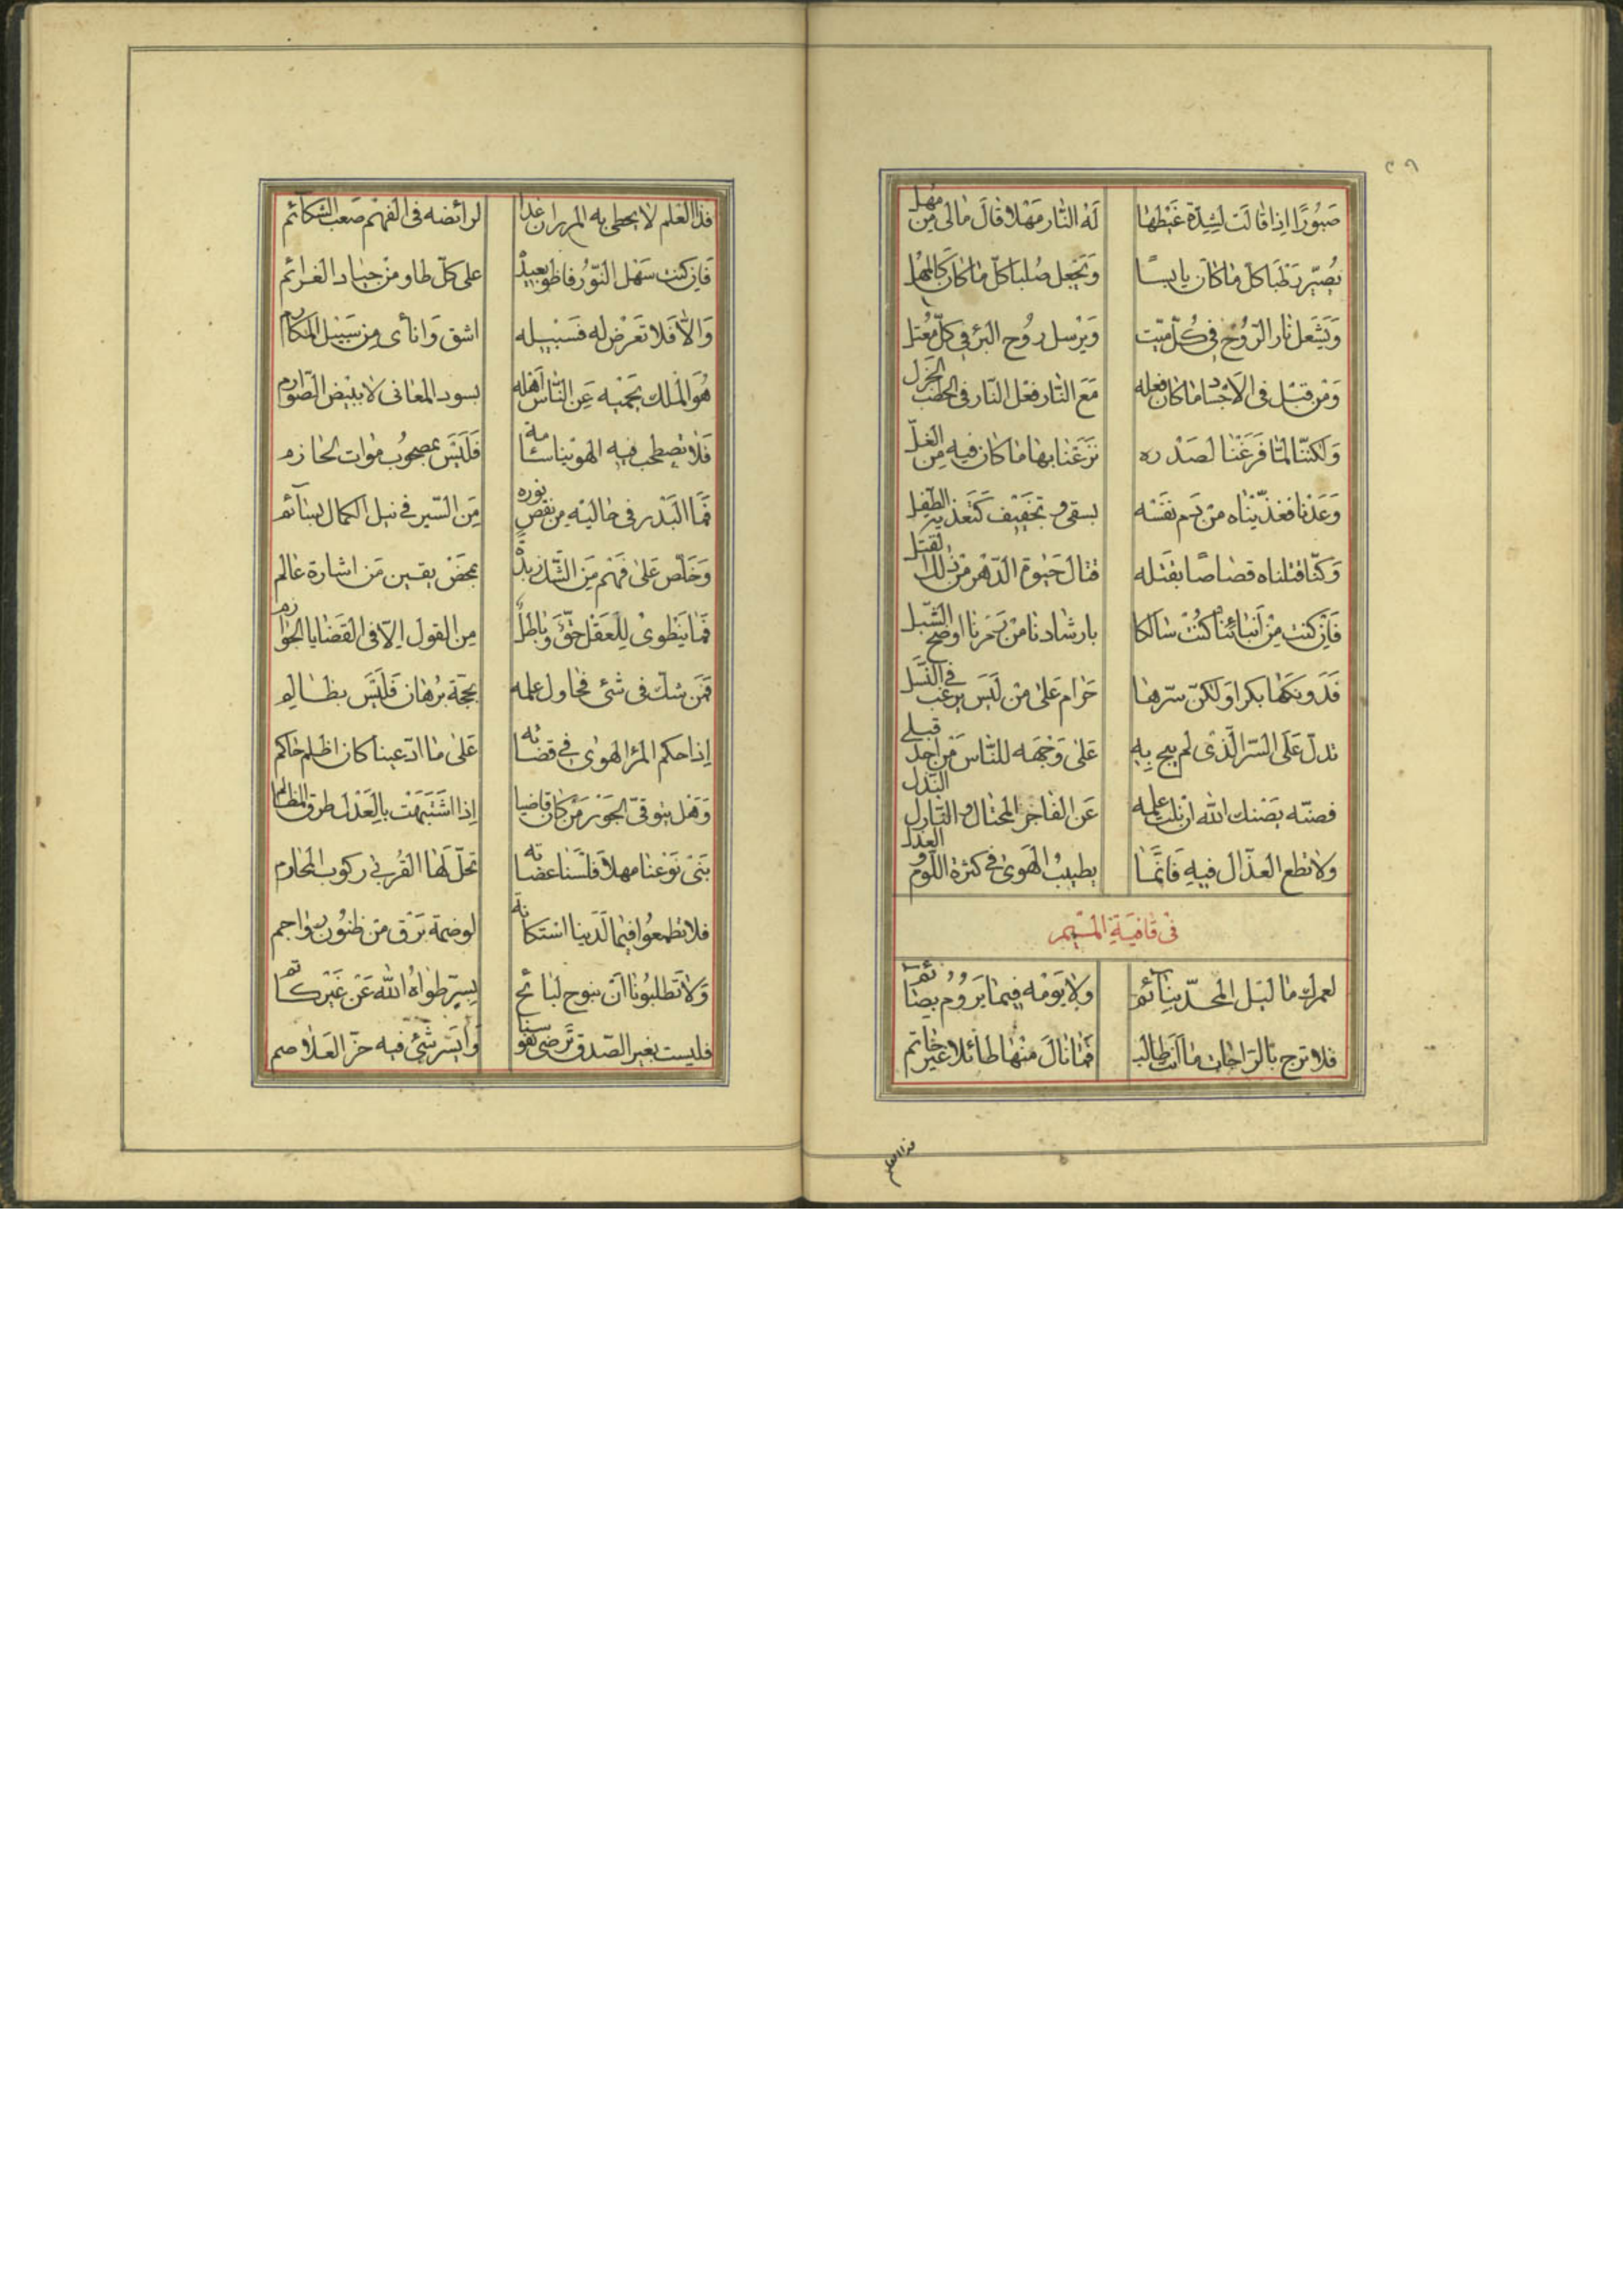 صَبُورًا اِذا قالَت لِشِدّة غَيْظها لَهُ النّار مَهْلا قالَ مالى مِن مُهْل
يُصَيّر رَطْبًا كلّ ما كانَ يابِسًا وَتَجْعل صُلْبًا كلّ ما كانَ كَالمُهل
وَيَشْعَل نار الرّوُح فى كُلّ ميّت وَيُرْسل رُوح البُرْءِ فى كلّ مُعْتلّ
وَمِن قَبْل فى الاَجْساد ما كانَ فعله مَعَ النّار فعْل النّار فى الحطَب الجَزل
وَلكنّنا لمّا فَرَغْنا لصَدْره نَزَعْنا بها ما كان فيهِ مِن الغلّ
وَعَدْنا فغذّيْناه مِن دَم نفسْه بسقى وتخَفيف كَتغذية الطّفل
وَكنّا قتلناه قصاصًا بقَتْله فنالَ حَيوة الدّهْر مِن ذلك القتل
فَاِن كنت مِنْ اَبنائنا كُنْت سَالكا بارشادنا مِن رَمْزنا اوضح السُّبل
فَدوُنكَها بكرا وَلكنّ سرّها حَرام عَلى مَن لَيسَ يرغب فى النّسل
تدلّ عَلى السّر الّذى لم يبح بِهِ عَلى وَجْهه للنّاس مِن اَحد قبلى
فصنْه يصنك الله ان نلت علمه عَن الفاجر المحتال والنّارل النّذل
ولا تطع العذّال فيهِ فَانّما يطيبُ الهَوى فى كثرة اللّوم والعذل
فى قافيَةِ المْيم
لعمرك ما لَيل المجدّ بنائم ولا يَوْمُه فيما يَرُوُم بصائم
فلا ترج بالرّاحات ما اَنت طالب فَما نالَ مِنْها طائلا غير حاتم
فذا العلم
فذا العْلم لا يحظى به المرء ان غدا لرائضه فى الفهم صَعب الشّكائم
على كلّ طاو مِن جياد العزائم
وَالّا فَلا تَعرَض له فَسَبيله اشق وَانأى مِن سَبيل المكارم
هُوَ المُلك يحَميه عَن النّاس اَهْله بسود المعانى لا ببيض الصّوارم
فَلا تصطحب فيه الهوينا سئامة فَليسَ بمصحوُب موات لحازم
فَما البَدر فى حاليْه مِن نقص نوره مِن السّير فى نيل الكمال بسائم
وَخَلّص عَلى فَهْم مِن الشّك زبدة بمحَض يقين مَن اشارة عالم
فَما ينطوى للعَقل حَقّ وَباطل مِن القول اِلّا فى القَضايا الجوازم
فمَن شكّ فى شئ فحاول علمه بحجّة بُرْهان فَليسَ بظالم
اِذا حكم المرْء الهوى فى قضائه عَلى ما ادّعينا كان اظلم حاكم
وَهَل يتوقىّ الجَوْر مَن كان قاضيا اِذا اشتَبَهَت بالعَدْل طرق المظالم
بَنى نَوْعنا مهلا فَلسْنا عضابة تحلّ لَها القُربى ركوب المحارم
فلا تطمعُوا فيما لَدَينا استكانة
وَلا تطلبُونا انَ نبوح لبائح بسِرّ طواهُ الله عَن غَيْر كاتم
فليست بغير الصّدق تَرضى نفوسنا وَايسر شَئ فيه حزّ الغلاصم